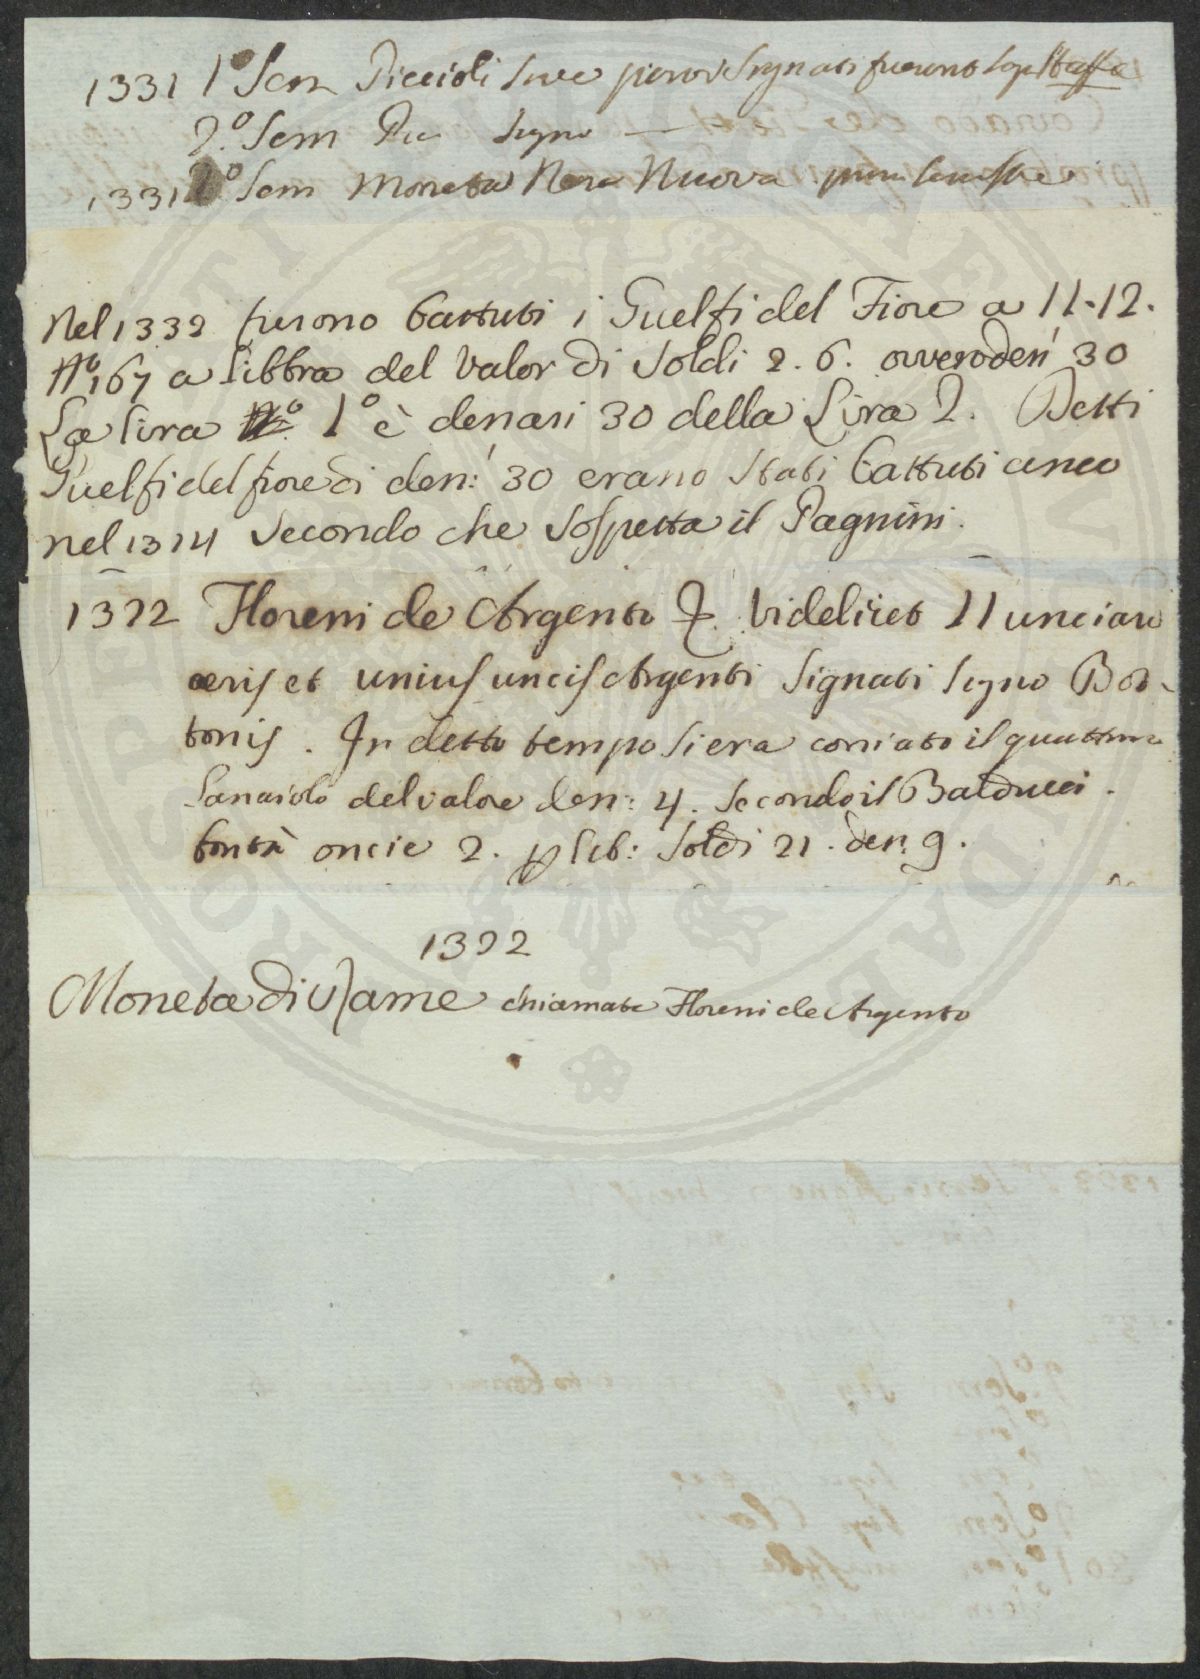 1331 1.o Sem Piccioli sive parvi signati fuerunt sig. Staffa
2.o Sem Pic Signo —
1331 2.o Sem Moneta Nera Nuova prim. Semestre
Nel 1332 furono battuti i Guelfi del Fiore a 11-12.
N.o 167 a libbra del valor di Soldi 2. 6. ovvero den 30
La lira 1.o è denari 30 della Lira 2. Detti
Guelfi del fiore di den: 30 erano stati battuti anco
nel 1314 Secondo che Sospetta il Pagnini.
1332 Floreni de Argento &. videlicet 11 unciaru
aeris et unius uncis Argenti Signati Signo Bot-
tonis. In detto tempo si era coniato il quattrino
Lanaiolo del valore den: 4. secondo il Balducci.
bontà oncie 2. p lib: Soldi 21. den: 9.
1332
Moneta di Rame chiamata Floreni de Argento